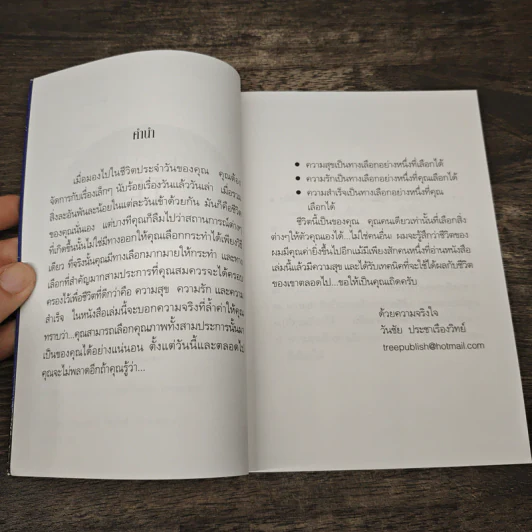 คำนำ
เมื่อมองไปในชีวิตประจำวันของคุณ คุณต้อง
จัดการกับเรื่องเล็กๆ นับร้อยเรื่องวันแล้ววันเล่า เมื่อรวม
สิ่งละอันพันละน้อยในแต่ละวันเข้าด้วยกัน มันก็คือชีวิต
ของคุณนั่นเอง แต่บางทีคุณก็ลืมไปว่าสถานการณ์ต่างๆ
ที่เกิดขึ้นนั้นไม่ใช่มีทางออกให้คุณเลือกกระทำได้เพียงสิ่ง
เดียว ที่จริงนั้นคุณมีทางเลือกมากมายให้กระทำ และทาง
เลือกที่สำคัญมากสามประการที่คุณสมควรจะได้ครอบ
ครองไว้เพื่อชีวิตที่ดีกว่าคือ ความสุข ความรัก และความ
สำเร็จ ในหนังสือเล่มนี้จะบอกความจริงที่ล้ำค่าให้คุณ
ทราบว่า...คุณสามารถเลือกคุณภาพทั้งสามประการนั้นมา
เป็นของคุณได้อย่างแน่นอน ตั้งแต่วันนี้และตลอดไป
คุณจะไม่พลาดอีกถ้าคุณรู้ว่า...
• ความสุขเป็นทางเลือกอย่างหนึ่งที่เลือกได้
• ความรักเป็นทางเลือกอย่างหนึ่งที่คุณเลือกได้
• ความสำเร็จเป็นทางเลือกอย่างหนึ่งที่คุณ
เลือกได้
ชีวิตนี้เป็นของคุณ คุณคนเดียวเท่านั้นที่เลือกสิ่ง
ต่างๆให้ตัวคุณเองได้...ไม่ใช่คนอื่น ผมจะรู้สึกว่าชีวิตของ
ผมมีคุณค่ายิ่งขึ้นไปอีกแม้มีเพียงสักคนหนึ่งที่อ่านหนังสือ
เล่มนี้แล้วมีความสุข และได้รับเทคนิคที่จะใช้ได้ผลกับชีวิต
ของเขาตลอดไป...ขอให้เป็นคุณเถิดครับ
ด้วยความจริงใจ
วันชัย ประชาเรืองวิทย์
treepublish@hotmail.com